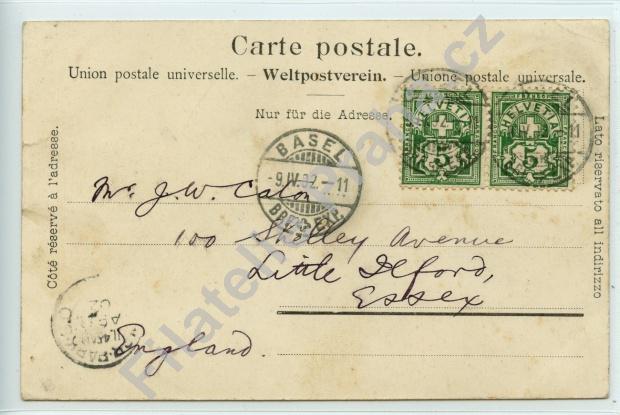 Carte postale.
Union postale universelle. – Weltpostverein. – Unione postale universale.
Nur für die Adresse.
Côté réservé à l'adresse.
Lato riservato all indirizzo
HELVETIA
5
HELVETIA
5
BASEL
-9.IV.02.-11
EXP.
Mr. J. W.
100 Shelley Avenue
Little Ilford,
Essex
England.
Filatelie